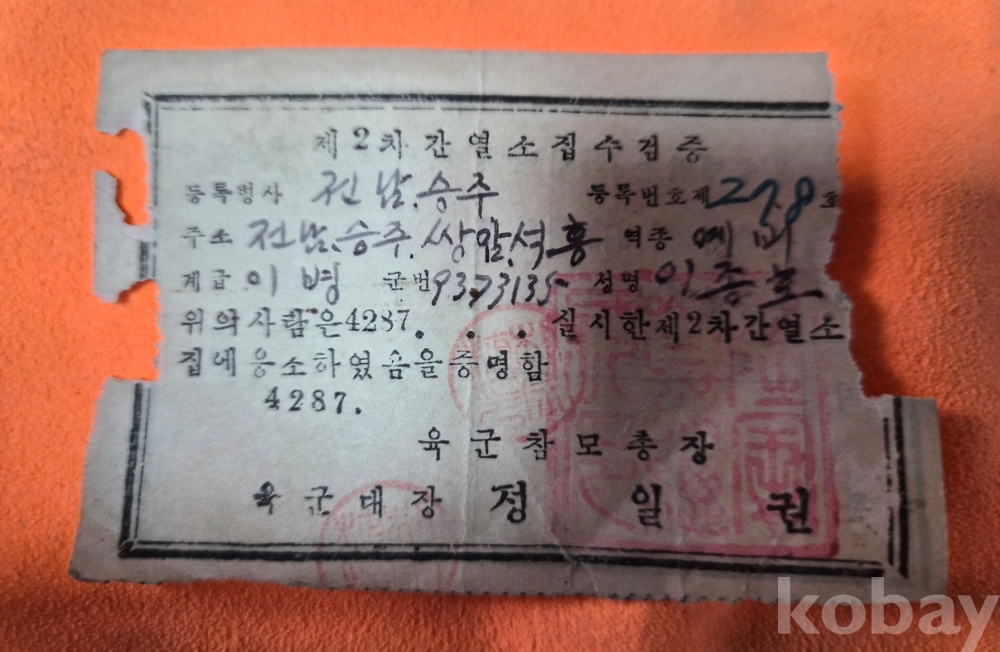 제2차간열소집수검증
등록병사 전남.승주 등록번호제 278 호
주소 전남.승주.쌍암.석흥 역종 예비
계급 이병 군번 9373135 성명 이종호
위의사람은4287. . . 실시한제2차간열소
집에응소하였음을증명함
4287.
육군참모총장
육군대장 정일권
kobay